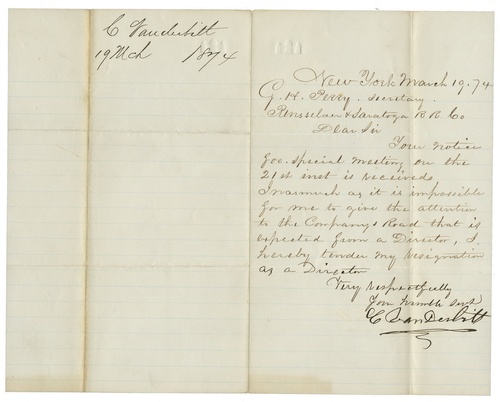 C Vanderbilt
19 Mch 1874
New York March 19. 74
G. H. Perry. Secretary.
Rensselaer & Saratoga R R. Co
Dear Sir
Your notice
for special meeting on the
21st inst is received.
Inasmuch as it is impossible
for me to give the attention
to the Companys Road that is
expected from a Director, I
hereby tender my resignation
as a Director
Very respectfully
Your humble Servt
C Van Derbilt